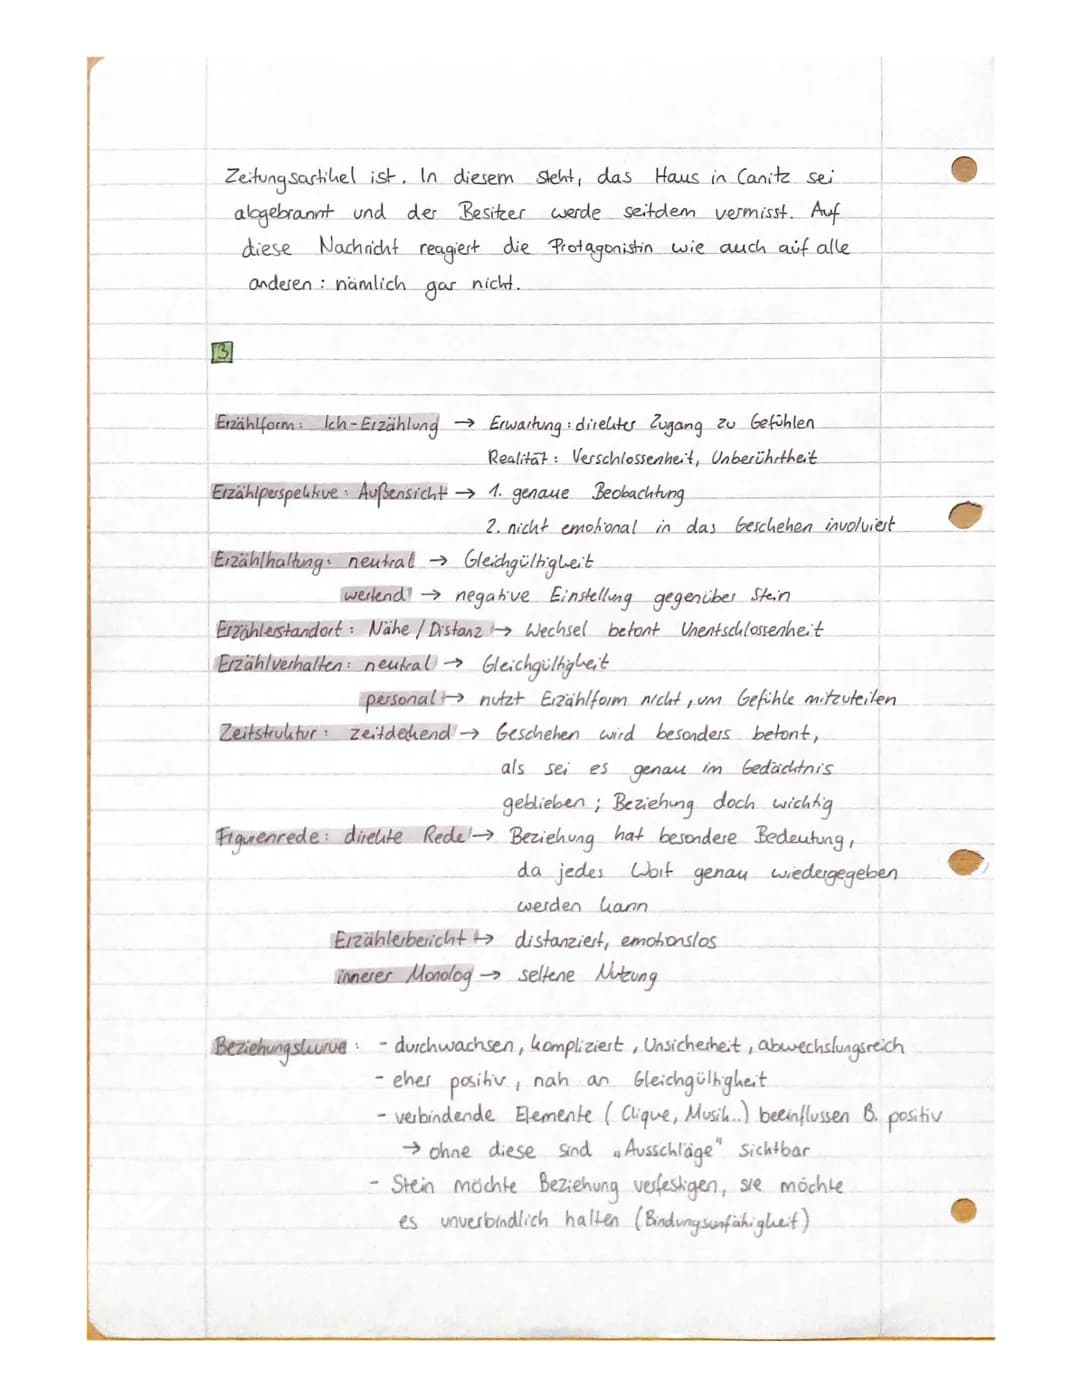 Zeitungsartikel ist. In diesem steht, das Haus in Canitz sei
abgebrannt und der Besitzer werde seitdem vermisst. Auf
diese Nachricht reagiert die Protagonistin wie auch auf alle
anderen: nämlich gar nicht.
3
Erzählform: Ich-Erzählung → Erwartung: direkter Zugang zu Gefühlen
Realität: Verschlossenheit, Unberührtheit
Erzählperspektive: Außensicht → 1. genaue Beobachtung
2. nicht emotional in das Geschehen involviert
Erzählhaltung: neutral → Gleichgültigkeit
wertend → negative Einstellung gegenüber Stein
Erzählerstandort: Nähe / Distanz → Wechsel betont Unentschlossenheit
Erzählverhalten: neutral → Gleichgültigkeit
personal → nutzt Erzählform nicht, um Gefühle mitzuteilen
Zeitstruktur: zeitdehend → Geschehen wird besonders betont,
als sei es genau im Gedächtnis
geblieben; Beziehung doch wichtig
Figurenrede: direkte Rede → Beziehung hat besondere Bedeutung,
da jedes Wort genau wiedergegeben
werden kann
Erzählerbericht → distanziert, emotionslos
innerer Monolog → seltene Nutzung
Beziehungskurve: - durchwachsen, kompliziert, Unsicherheit, abwechslungsreich
- eher positiv, nah an Gleichgültigkeit
- verbindende Elemente (Clique, Musik..) beeinflussen B. positiv
→ ohne diese sind „Ausschläge" sichtbar
- Stein möchte Beziehung verfestigen, sie möchte
es unverbindlich halten (Bindungsunfähigkeit)